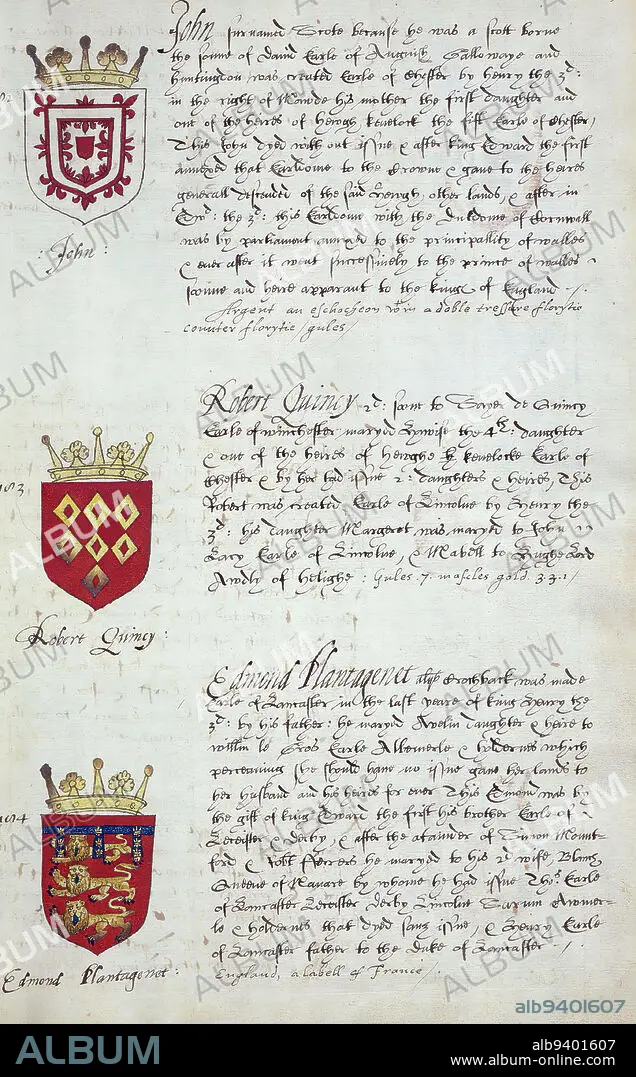 John surnamed Scote because he was a scott borne
the sonne of David Earle of Angwish Gallowaye and
Huntingdon was created Earle of Chester by Henry the 3d:
in the right of Mawde his mother the first daughter and
one of the heires of Hewgh Kevelock the fift Earle of Chester /
This John dyed with out issue & after King Edward the first
annexed that Earldome to the Crowne & gave to the heires
generall descended of the said Hewgh other lands, & after in
the 3d: this Earldome with the Dukdome of Cornwall
was by parliament annexed to the principallity of walles
& ever after it went successively to the prince of walles
sonne and heire apparant to the kinge of England /.
Argent an eschocheon wthin a doble tressure florytie
counter florytie / gules /
: John :
Robert Quincy 2d: sonne to Sayer de Quincy
Earle of winchester maryed Hawise the 4th: daughter
& one of the heires of Hewghe Kevelocke Earle of
Chester & by her had issue 2: daughters & heires, This
Robert was created Earle of Lincolne by Henry the
3d: his daughter Margeret was maryed to John
Lacy Earle of Lincolne, & Mabell to Hughe Lord
Awdly of Helighe : Gules .7. mascles gold .3.3.1 /
183
Robert Quincy :
Edmond Plantagenet als Crochback was made
Earle of Lancaster in the last yeare of king Henry the
3d: by his father: he maryed Avelin daughter & heire to
willm le Gros Earle Albemerle & holdernes which
perceaving she should have no issue gave her lands to
her husband and his heires for ever This Emond was by
the gift of king Edward the first his brother Earle of
Leicester & Derby, & after the atainder of Simon Mount-
ford & Robt Ferrers he maryed to his 2d wife, Blanch
Queene of Navare by whome he had issue Tho: Earle
of Lancaster Leicester derby Lincolne Sarum
& holdernes that dyed sans issue, & Henry Earle
of Lancaster father to the duke of Lancaster /
England, a labell of France /.
184
Edmond Plantagenet :
ALBUM
alb9401607
ALBUM
alb9401607
www.album-online.com